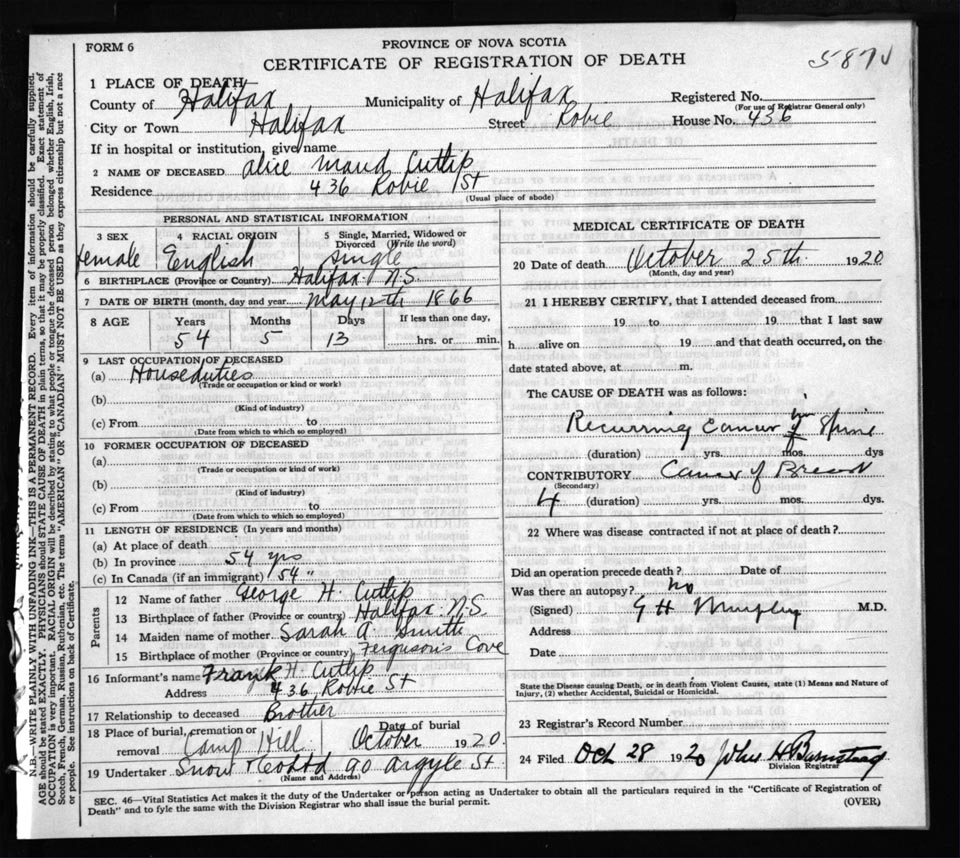 FORM 6
PROVINCE OF NOVA SCOTIA
CERTIFICATE OF REGISTRATION OF DEATH
1 PLACE OF DEATH
County of Halifax Municipality of Halifax Registered No.
(For use of Registrar General only)
City or Town Halifax Street Robie House No. 436
If in hospital or institution, give name
2 NAME OF DECEASED Alice Maud Cutlip
Residence 436 Robie St
(Usual place of abode)
PERSONAL AND STATISTICAL INFORMATION
3 SEX 4 RACIAL ORIGIN 5 Single, Married, Widowed or Divorced (Write the word)
Female English Single
6 BIRTHPLACE (Province or Country) Halifax N.S.
7 DATE OF BIRTH (month, day and year) May 12th 1866
8 AGE Years Months Days If less than one day,
54 5 13 hrs. or min.
9 LAST OCCUPATION OF DECEASED
(a) Houseduties
(Trade or occupation or kind or work)
(b)
(Kind of industry)
(c) From to
(Date from which to which so employed)
10 FORMER OCCUPATION OF DECEASED
(a)
(Trade or occupation or kind of work)
(b)
(Kind of industry)
(c) From to
(Date from which to which so employed)
11 LENGTH OF RESIDENCE (In years and months)
(a) At place of death
(b) In province 54 yrs
(c) In Canada (if an immigrant) 54 "
Parents
12 Name of father George H. Cutlip
13 Birthplace of father (Province or country) Halifax N.S.
14 Maiden name of mother Sarah A. Smith
15 Birthplace of mother (Province or country) Ferguson's Cove
16 Informant's name Frank H. Cutlip
Address 436, Robie St
17 Relationship to deceased Brother
18 Place of burial, cremation or removal Camp Hill Date of burial October 1920
19 Undertaker Snow & Co Ltd 90 Argyle St
(Name and Address)
MEDICAL CERTIFICATE OF DEATH
20 Date of death October 25th 1920
(Month, day and year)
21 I HEREBY CERTIFY, that I attended deceased from
19 to 19 that I last saw
h alive on 19 and that death occurred, on the
date stated above, at m.
The CAUSE OF DEATH was as follows:
Recurring Cancer in Spine
(duration) yrs. mos. dys
CONTRIBUTORY Cancer of Breast
(Secondary)
4 (duration) yrs. mos. dys.
22 Where was disease contracted if not at place of death?
Did an operation precede death? Date of
Was there an autopsy? no
(Signed) G H Murphy M.D.
Address
Date
State the Disease causing Death, or in death from Violent Causes, state (1) Means and Nature of Injury, (2) whether Accidental, Suicidal or Homicidal.
23 Registrar's Record Number
24 Filed Oct 28 1920 John H Barnstead
Division Registrar
SEC. 46—Vital Statistics Act makes it the duty of the Undertaker or person acting as Undertaker to obtain all the particulars required in the "Certificate of Registration of
Death" and to fyle the same with the Division Registrar who shall issue the burial permit.
(OVER)
N.B.—WRITE PLAINLY WITH UNFADING INK—THIS IS A PERMANENT RECORD. Every item of information should be carefully supplied.
AGE should be stated EXACTLY. PHYSICIANS should STATE CAUSE OF DEATH in plain terms, so that it may be properly classified. Exact statement of
OCCUPATION is very important. RACIAL ORIGIN will be described by stating to what people or tongue the deceased person belonged whether English, Irish,
Scotch, French, German, Russian, Ruthenian, etc. The terms "AMERICAN" OR "CANADIAN" MUST NOT BE USED as they express citizenship but not a race
or people. See instructions on back of Certificate.